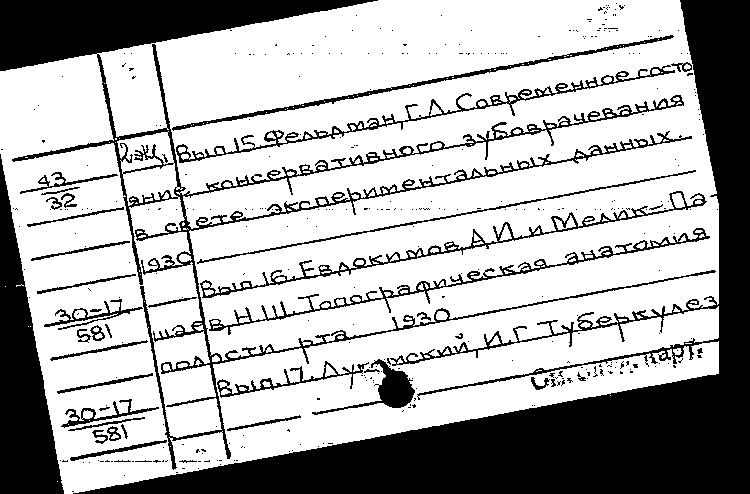 Вып 15. Фельдман, Г.Л. Современное состо
43/32
яние консервативного зубоврачевания
в свете экспериментальных данных.
1930.
Вып 16. Евдокимов, А.И. и Мелик-Па-
30-17/581
шаев, Н.Ш. Топографическая анатомия
полости рта. 1930.
Вып. 17. Лукомский, И.Г. Туберкулез
30-17/581
См. след. карт.